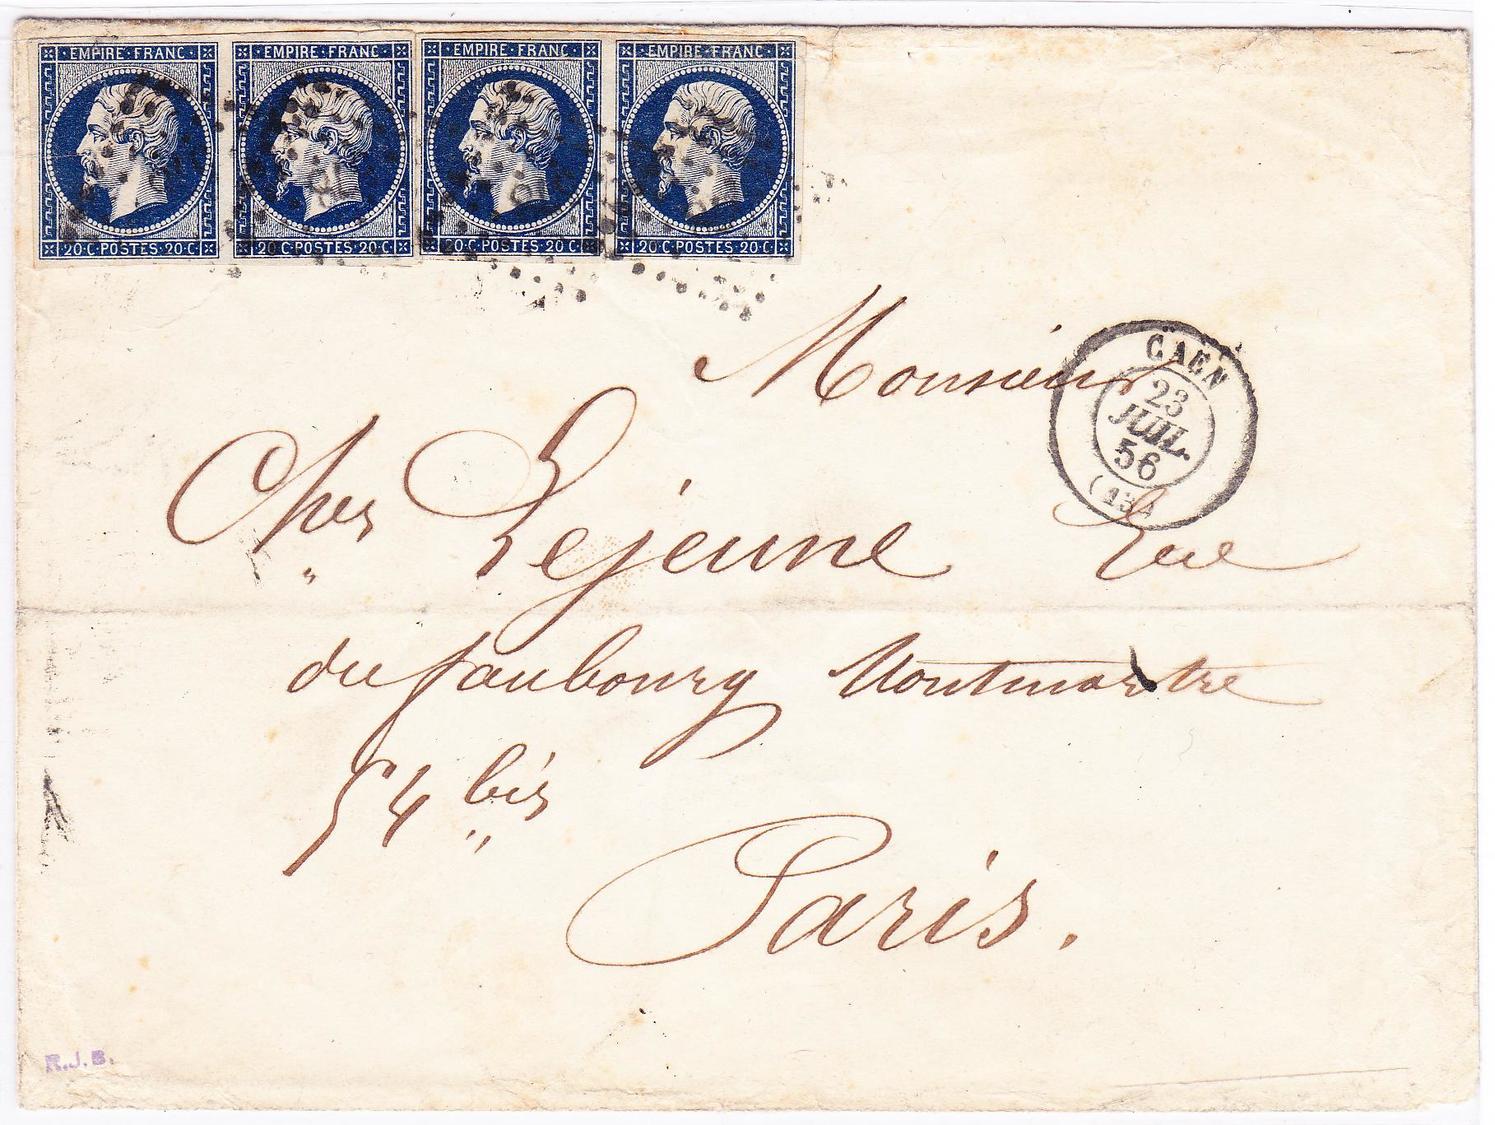 EMPIRE·FRANC· EMPIRE·FRANC· EMPIRE·FRANC· EMPIRE·FRANC·
20·C·POSTES·20·C· 20·C·POSTES·20·C· 20·C·POSTES·20·C· 20·C·POSTES·20·C·
CAEN
23
JUIL.
56
Monsieur
Chles Lejeune Rue
du faubourg Montmartre
54 bis
Paris.
R.J.B.